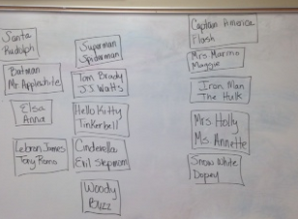 Santa
Rudolph
Batman
Mr. Applewhite
Elsa
Anna
Lebron James
Tony Romo
Superman
Spiderman
Tom Brady
J.J. Watts
Hello Kitty
Tinkerbell
Cinderella
Evil Stepmom
Woody
Buzz
Captain America
Flash
Mrs Marino
Maggie
Iron Man
The Hulk
Mrs Holly
Ms. Annette
Snow White
Dopey